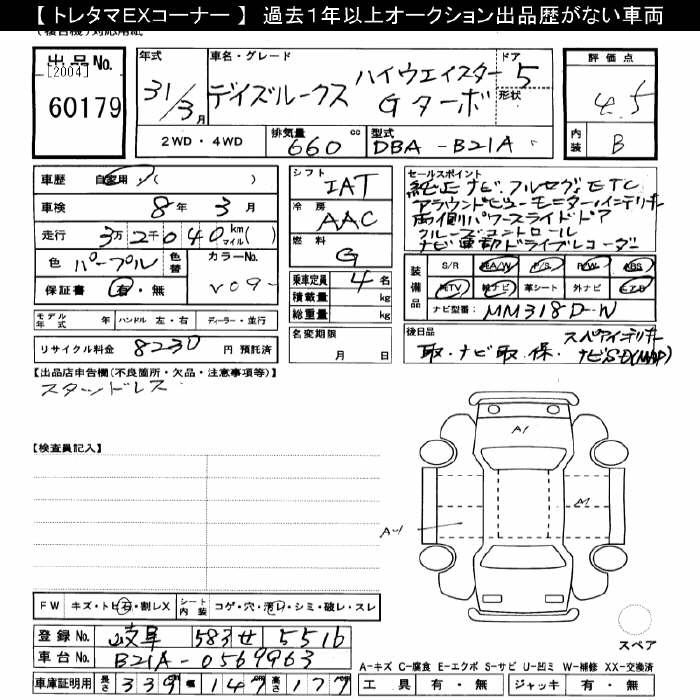 【 トレタマEXコーナー 】 過去１年以上オークション出品歴がない車両
出品No.
[2004]
60179
年式
31/3月
車名・グレード
デイズルークス ハイウェイスター Gターボ
ドア 5
形状
評価点
4.5
内装 B
2WD・4WD
排気量 660 cc
型式 DBA-B21A
車歴 自家用 ( )
車検 8年 3月
走行 3万2千040 km マイル( )
色 パープル 色替
カラーNo. V09-
保証書 有・無
モデル年式 年 ハンドル 左・右 ディーラー・並行
リサイクル料金 8230 円 預託済
シフト IAT
冷房 AAC
燃料 G
乗車定員 4 名
積載量 kg
総重量 kg
名変期限 月 日
セールスポイント
純正ナビ フルセグ ETC
アラウンドビューモニター インテリキー
両側パワースライドドア
クルーズコントロール
ナビ連動ドライブレコーダー
装備品
S/R 純A/W P/S P/W ABS
純TV 純ナビ 革シート 外ナビ エアB
ナビ型番: MM318D-W
後日品
取・ナビ取 保 スペアインテリキー
ナビSD(MAP)
【出品店申告欄(不良箇所・欠品・注意事項等)】
スタッドレス
【検査員記入】
A1
A1
FW キズ・トビ石・割レX シート内装 コゲ・穴・汚レ・シミ・破レ・スレ
登録No. 岐阜 583 せ 5516
車台No. B21A-0569963
車庫証明用 長さ 339 幅 147 高さ 177
スペア
A－キズ C－腐食 E－エクボ S－サビ U－凹ミ W－補修 XX－交換済
工具 有・無 ジャッキ 有・無